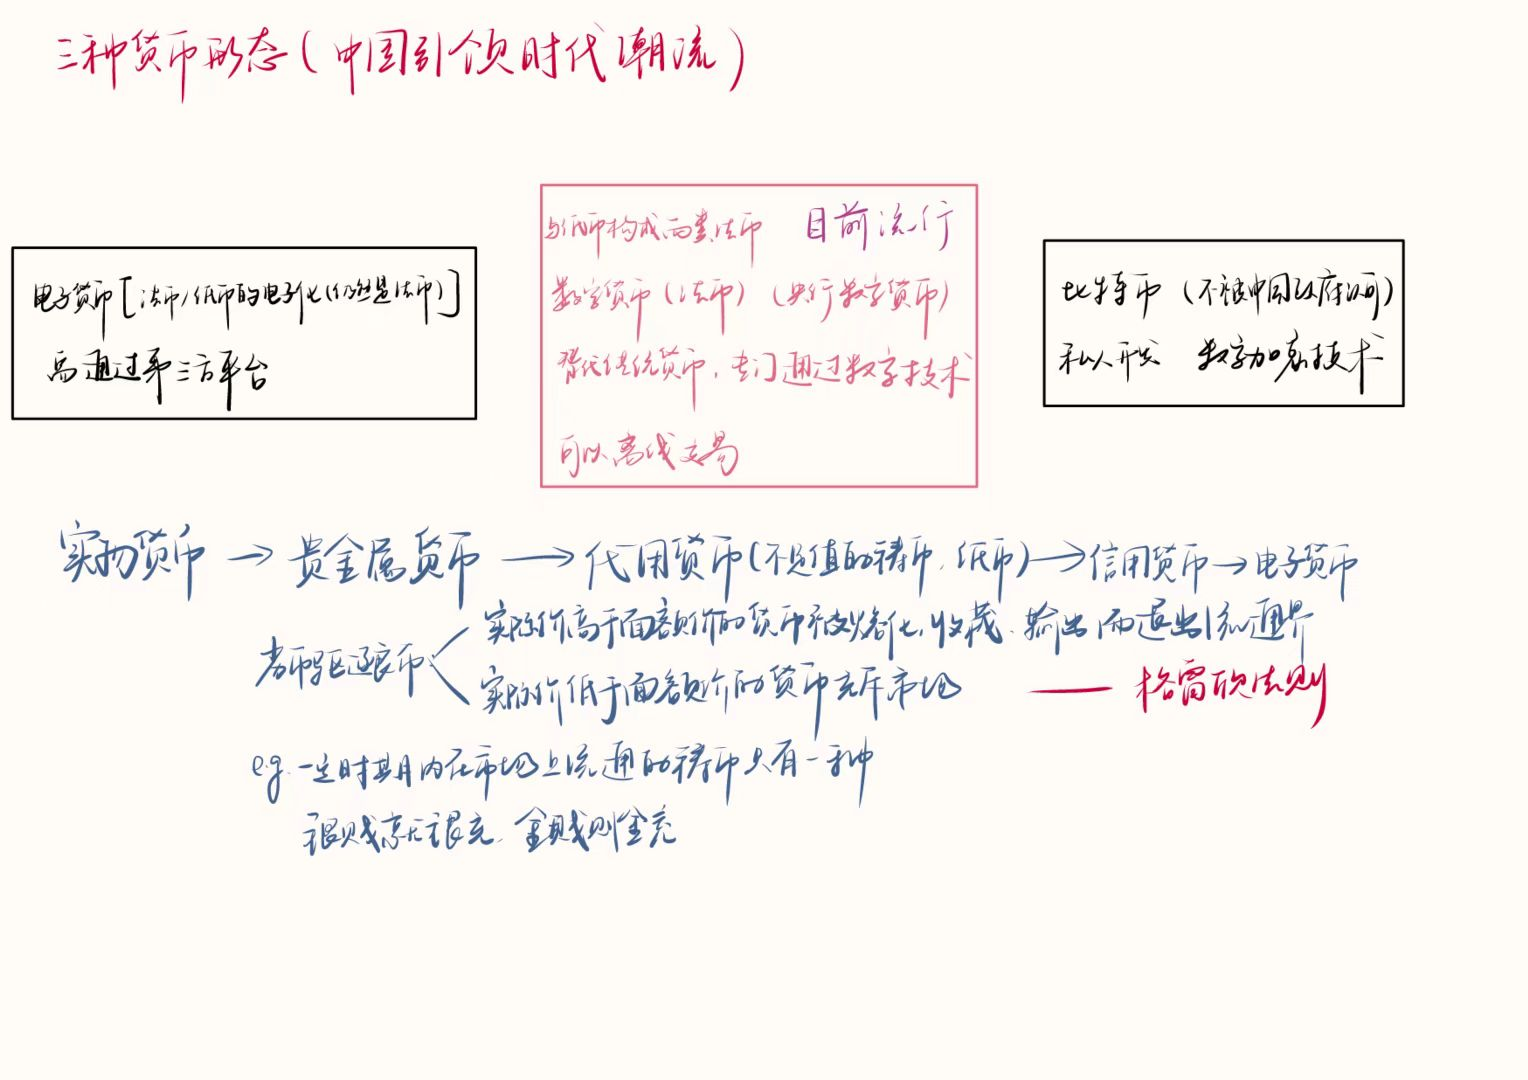 三种货币形态(中国引领时代潮流)
电子货币[法币/纸币的电子化(仍然是法币)]
需通过第三方平台
与纸币构成两类法币 目前流行
数字货币(法币) (央行数字货币)
替代传统货币,专门通过数字技术
可以离线交易
比特币 (不被中国政府认可)
私人开发 数字加密技术
实物货币 → 贵金属货币 → 代用货币(不足值的铸币,纸币) → 信用货币 → 电子货币
劣币驱逐良币
实际价高于面额价的货币被熔化,收藏、输出而退出流通界
实际价低于面额价的货币充斥市场 —— 格雷欣法则
e.g. 一定时期内在市场上流通的铸币只有一种
银贱则银充,金贱则金充